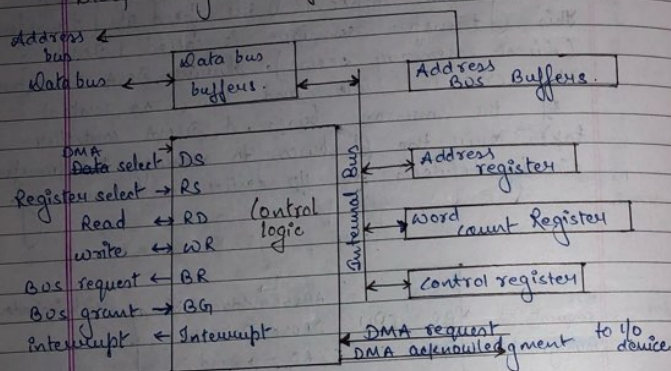 Address
bus
Data bus
Data bus
buffers.
Address
Bus Buffers.
DMA
Data select
DS
Register select
RS
Read
RD
write
WR
Bus request
BR
Bus grant
BG
interrupt
Interrupt
Control
logic
Internal Bus
Address
register
Word
count Register
control register
DMA request
DMA acknowledgment
to i/o
device